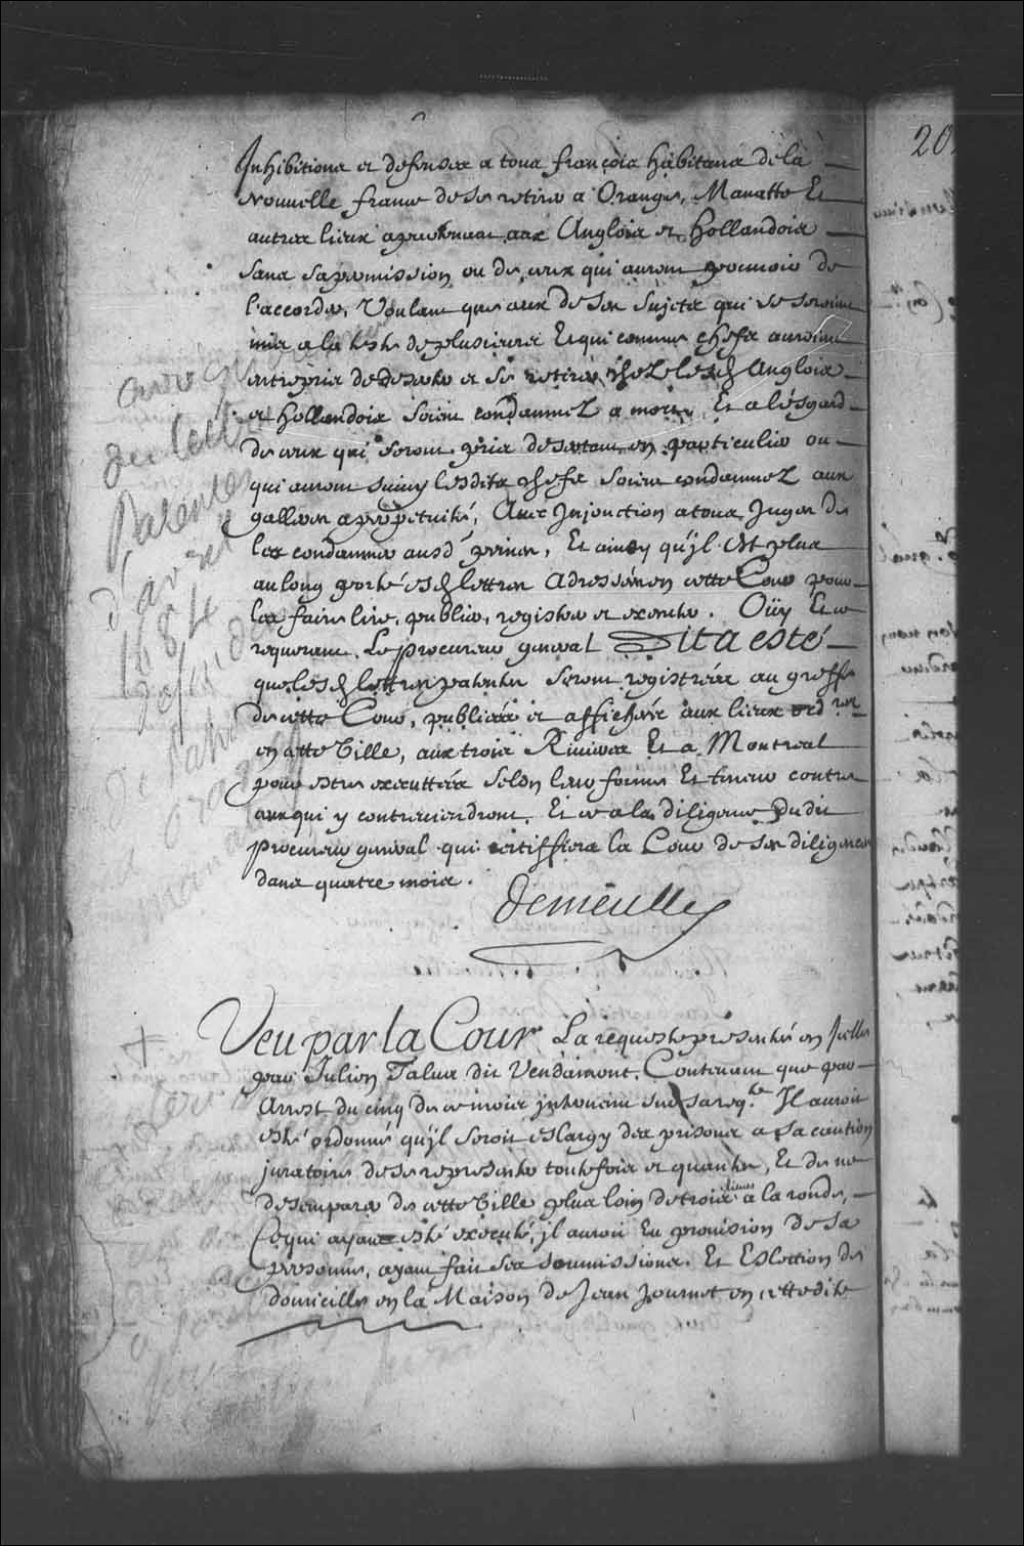 Inhibitions et defenses a tous françois habitans de la
Nouvelle france de se retirer a Orange, Manatte Et
autres lieux apartenans aux Anglois et Hollandois
sans sa permission, ou de ceux qui auront pouvoir de
l'accorder, Voulant que ceux de ses Sujets qui se seroient
mis a la teste de plusieurs Et qui comme chefs auroient
entrepris de deserter et se retirer chez lesd Anglois
et Hollandois soient condamnez a mort, Et a l'esgard
de ceux qui seront pris desertans en particulier ou
qui auront suivy lesdits chefs soient condamnez aux
galleres a perpetuité, Avec Injonction a tous Juges de
les condamner ausd. peines, Et ainsy qu'jl Est plus
au long porté esd lettres Adressées en cette Cour pour
les faire lire, publier, registrer et executer. Oüy Et ce
requerant Le procureur general Dit a esté
que lesd lettres patentes seront registrées au greffe
de cette Cour, publiées et affichées aux lieux ord.res
en cette Ville, aux trois Rivieres Et a Montreal
pour estre executtées selon leur forme Et teneur contre
ceux qui y contreviendront, Et ce a la diligence dudit
procureur general qui certiffiera la Cour de ses diligences
dans quatre mois.
Demeulle
Veu par la Cour La requeste presentée en Jcelle
par Julien Talua dit Vendamont, Contenant que par
Arrest du cinq de ce mois jntervenu sur sa req.te Jl auroit
esté ordonné qu'jl seroit eslargy des prisons a sa caution
juratoire de se representer toutefois et quantes, Et de ne
desemparer de cette Ville plus loin de trois lieues a la ronde,
Ce qui ayant esté executé, jl auroit Eu provision de sa
personne, ayant fait ses soumissions, Et Eslection de
domicille en la Maison de Jean Journet en cettedite
des lettres
Patentes
d'avril
1684
20